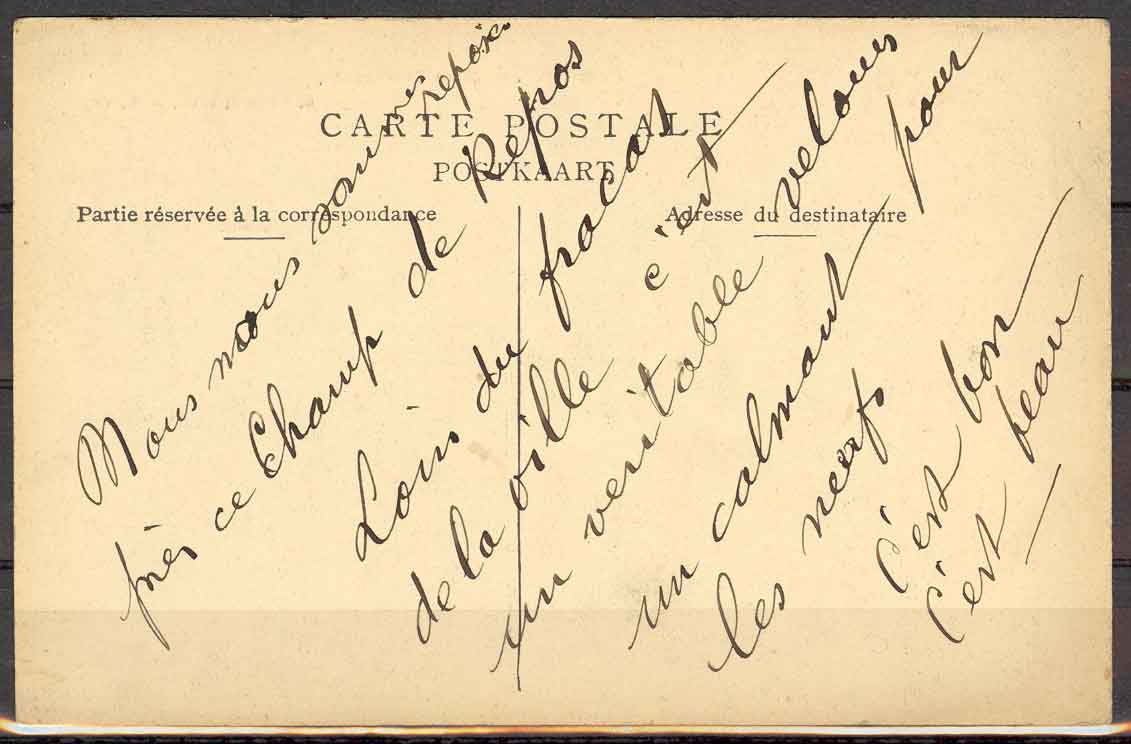 CARTE POSTALE
POSTKAART
Partie réservée à la correspondance
Adresse du destinataire
Nous nous sommes reposés
près ce Champ de Repos
Loin du fracas
de la ville c'est
un veritable velours
un calmant pour
les nerfs
C'est bon
C'est beau